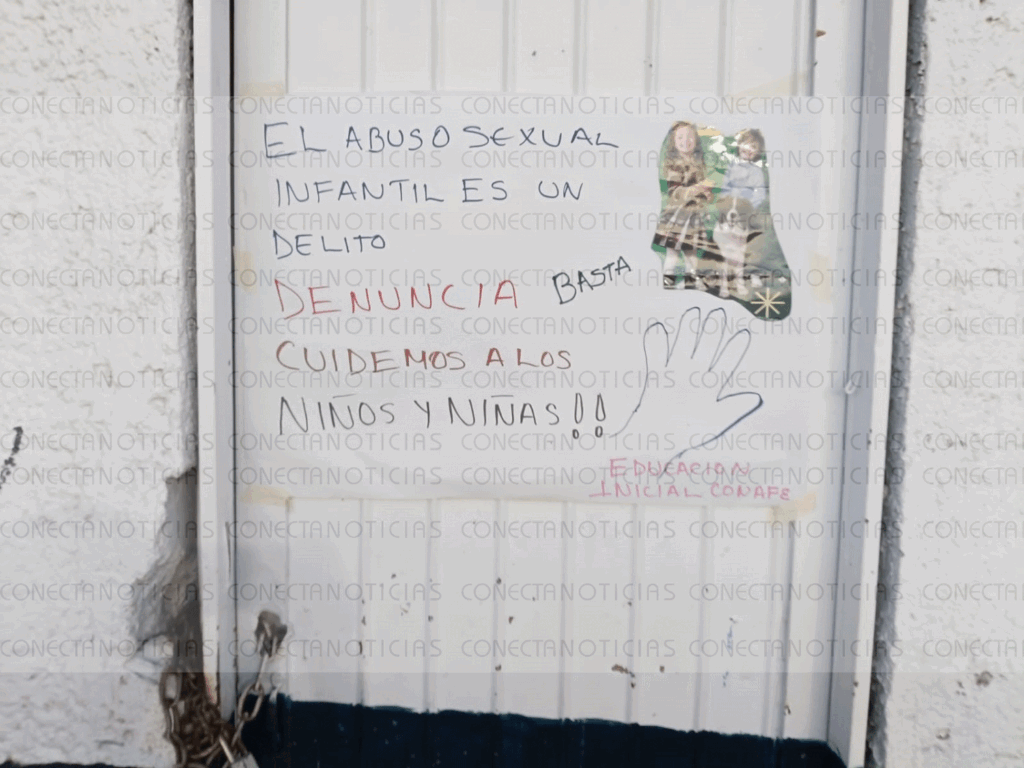 EL ABUSO SEXUAL
INFANTIL ES UN
DELITO
DENUNCIA BASTA
CUIDEMOS A LOS
NIÑOS Y NIÑAS!!
EDUCACION
INICIAL CONAFE
CONECTANOTICIAS CONECTANOTICIAS CONECTANOTICIAS CONECTANOTICIAS